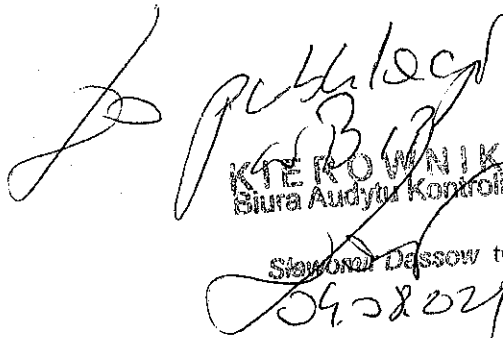 Do publikacji
w BIP
KIEROWNIK
Biura Audytu i Kontroli
Sławomir Dassow